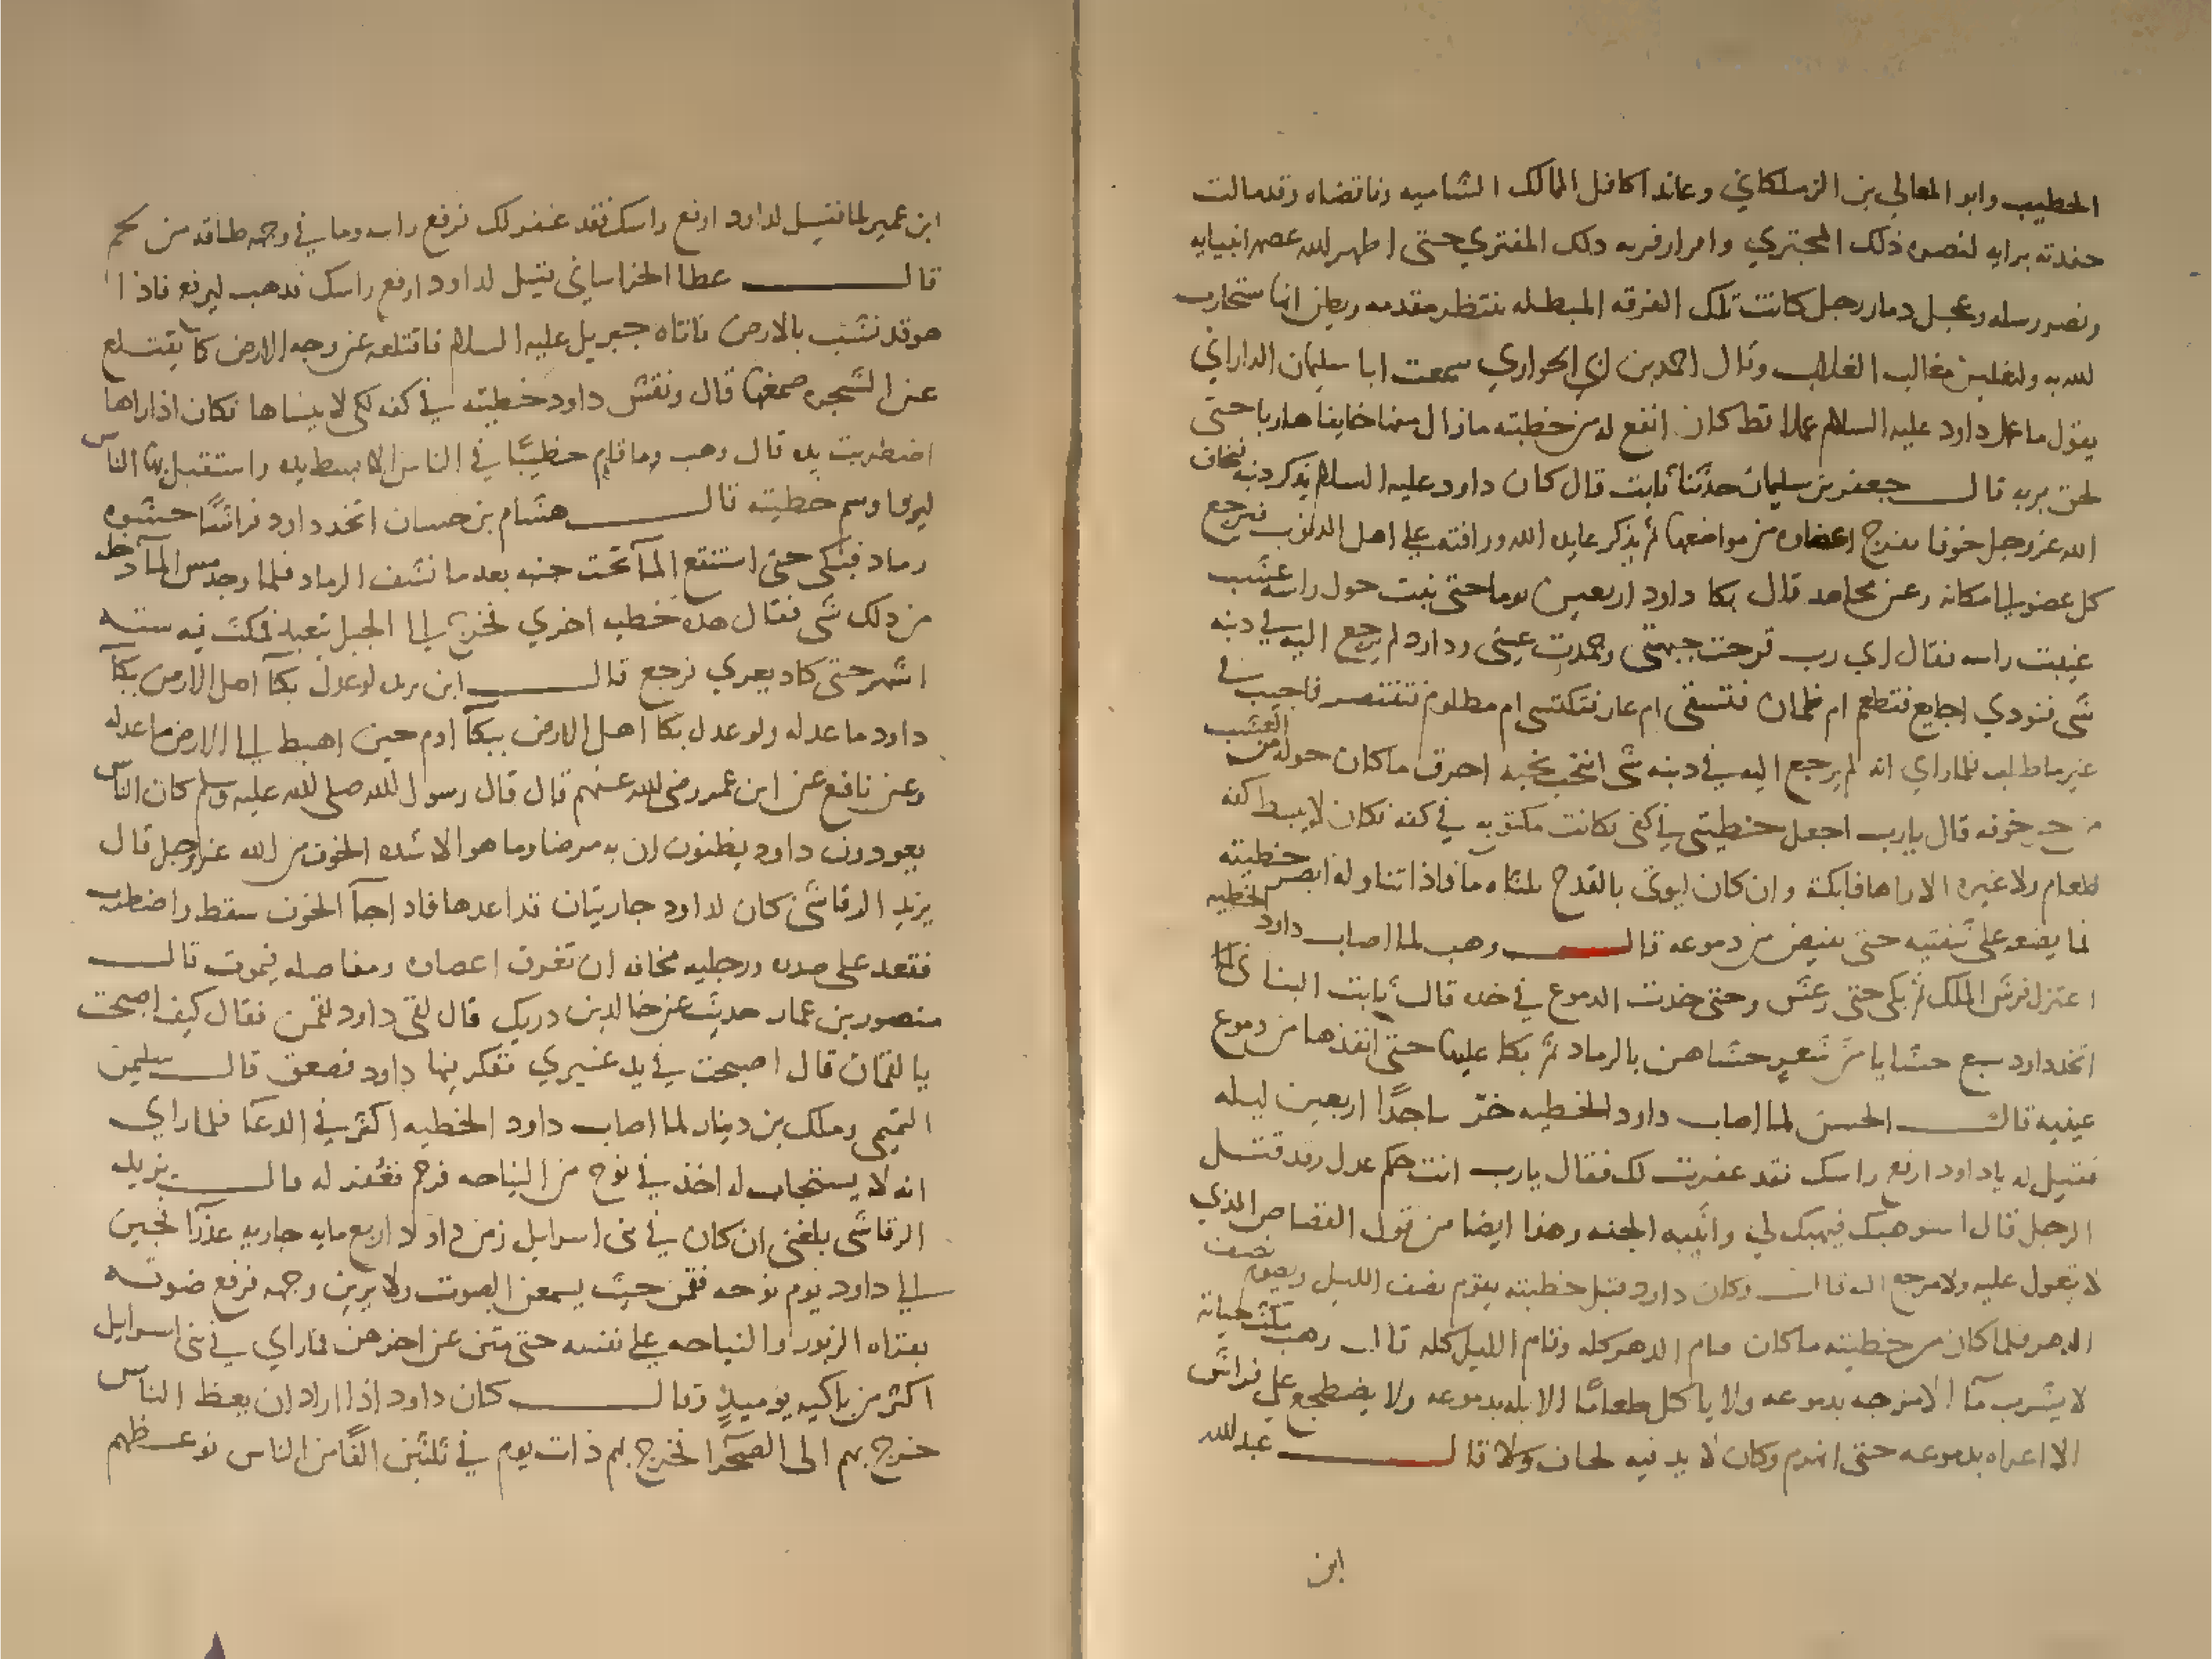 الخطيب وابو المعالي بن الزملكاني وعاندا كافل الممالك الشاميه وناقضاه وقد مالت
حفدته برايه لنصره ذلك المجتري وامرار فريه ذلك المفتري حتى اظهر الله عصمه انبيايه
ونصر رسله وعجل دمار رجل كانت تلك الفرقه المبطله تنتظر مقدمه ويظن انها ستحارب
الله به وليغلبن مغالب الغلاب وقال احمد بن ابي الحواري سمعت ابا سليمان الداراني
يقول ما عمل داود عليه السلام عملا قط كان انفع له من خطيته ما زال منها خايفا هاربا حتى
لحق بربه قال جعفر بن سليمان حدثنا ثابت قال كان داود عليه السلام يذكر ذنبه فيخاف
الله عز وجل خوفا تنفرج اعضاوه من مواضعها ثم يذكر عايده الله ورافته على اهل الذنوب فيرجع
كل عضو الى مكانه وعن مجاهد قال بكا داود اربعين يوما حتى نبت حول راسه عشب
غيبت راسه فقال اي رب قرحت جبهتي وجمدت عيني وداود لم يرجع اليه في ذنبه
شي فنودي اجايع فتطعم ام ظمان فتسقى ام عار فتكتسى ام مظلوم فتنتصر فاجيب في
غير ما طلب فلما راي انه لم يرجع اليه في ذنبه شي انتحب نحبه احرق ما كان حوله من العشب
من حر خوفه قال يا رب اجعل خطيتي في كفي فكانت مكتوبه في كفه فكان لا يبسط كفه
لطعام ولا غيره الا راها فابكته وان كان ليوتى بالقدح ثلثاه ما فاذا تناوله ابصر خطيته
فما يضعه على شفتيه حتى يفيض من دموعه قال وهب لما اصاب داود الخطيه
اعتزل فرش الملك ثم بكى حتى رعش وحتى خدت الدموع في خده قال ثابت البناني
اتخد داود سبع حشايا من شعر حشاهن بالرماد ثم بكا عليها حتى انفذها من دموع
عينيه قال الحسن لما اصاب داود الخطيه خر ساجدا اربعين ليله
فقيل له يا داود ارفع راسك فقد غفرت لك فقال يا رب انت حكم عدل وقد قتل
الرجل قال استوهبك فيهبك لي واثيبه الجنه وهذا ايضا من قول القصاص الذي
لا يعول عليه ولا مرجع اليه قال وكان داود قبل خطيته يقوم نصف الليل ويصوم نصف
الدهر فلما كان من خطيته ما كان صام الدهر كله وقام الليل كله قال وهب مكث حياته
لا يشرب مآ الا مزجه بدموعه ولا ياكل طعاما الا بله بدموعه ولا يضطجع على فراش
الا اعراه بدموعه حتى انهزم وكان لا يدفيه لحاف ولا قال عبد الله
ابن
ابن عمير لما قيل لداود ارفع راسك فقد غفر لك فرفع راسه وما في وجهه طاقه من لحم
قال عطا الخراساني قيل لداود ارفع راسك فذهب ليرفع فاذا
هو قد نشب بالارض فاتاه جبريل عليه السلام فاقتلعه عن وجه الارض كما يقتلع
عن الشجره صمغها قال ونقش داود خطيته في كفه لكي لا ينساها فكان اذا راها
اضطربت يده قال وهب وما قام خطيبا في الناس الا بسط يده واستقبل بها الناس
ليروا وسم خطيته قال هشام بن حسان اتخد داود فراشا حشوه
رماد فبكى حتى استنقع المآ تحت جنبه بعد ما نشف الرماد فلما وجد مس المآ دخله
من ذلك شي فقال هذه خطيه اخري فخرج الى الجبل يتعبد فمكث فيه سته
اشهر حتى كاد يعري فرجع قال ابن بريده لو عدل بكآ اهل الارض ببكآ
داود ما عدله ولو عدل بكا اهل الارض ببكآ ادم حين اهبط الى الارض ما عدله
وعن نافع عن ابن عمر رضي الله عنهم قال قال رسول الله صلى الله عليه وسلم كان الناس
يعودون داود يظنون ان به مرضا وما هو الا شده الخوف من الله عز وجل قال
يزيد الرقاشي كان لداود جاريتان قد اعدهما فاذا جآ الخوف سقط واضطرب
فقعدتا على صدره ورجليه مخافه ان تفرق اعضاوه ومفاصله فيموت قال
منصور بن عمار حديث عن خالد بن دريك قال لقي داود لقمن فقال كيف اصبحت
يا لقمان قال اصبحت في يد غيري تفكر فيها داود فصعق قال سليمن
التيمي وملك بن دينار لما اصاب داود الخطيه اكثر في الدعآ فلما راي
انه لا يستجاب له اخذ في نوح من النياحه فرحم فغفر له قال يزيد
الرقاشي بلغني ان كان في بني اسرايل زمن داود اربع مايه جاريه عذرآ يجين
الى داود يوم نوحه فقمن حيث يسمعن الصوت ولا يرين وجهه فرفع صوته
بقراه الزبور والنياحه على نفسه حتى متن عن اخرهن فما راي في بني اسرايل
اكثر من باكيه يوميذ وقال كان داود اذا اراد ان يعظ الناس
خرج بهم الى الصحرآ فخرج بهم ذات يوم في ثلثين الفا من الناس فوعظهم